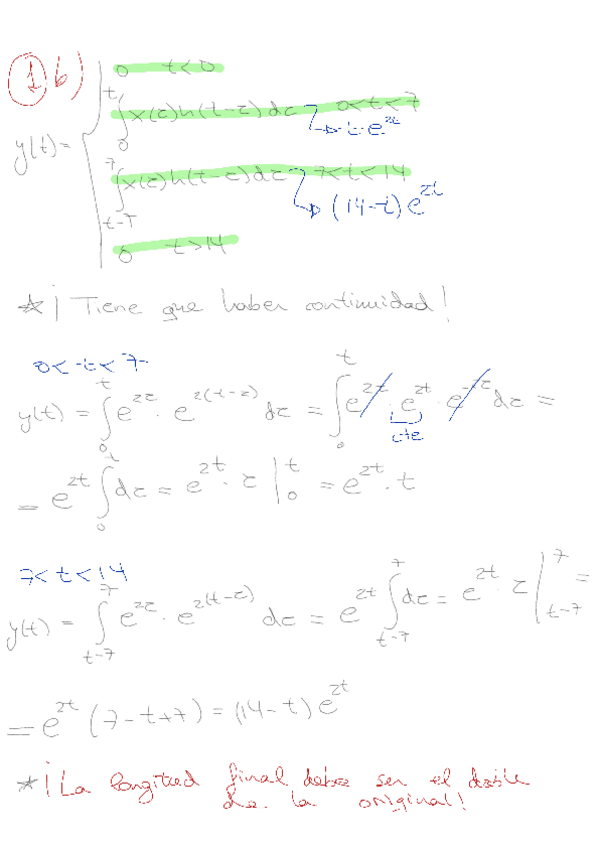 1 b)
y(t) = { 0 t<0
∫₀ᵗ x(τ)h(t-τ)dτ 0<t<7
→ t·e^{2t}
∫_{t-7}^{7} x(τ)h(t-τ)dτ 7<t<14
→ (14-t)e^{2t}
0 t>14
*¡Tiene que haber continuidad!
0<t<7
y(t) = ∫₀ᵗ e^{2τ}·e^{2(t-τ)} dτ = ∫₀ᵗ e^{2τ}·e^{2t}·e^{-2τ} dτ =
cte
= e^{2t} ∫₀ᵗ dτ = e^{2t}·τ |₀ᵗ = e^{2t}·t
7<t<14
y(t) = ∫_{t-7}^{7} e^{2τ}·e^{2(t-τ)} dτ = e^{2t} ∫_{t-7}^{7} dτ = e^{2t}·τ |_{t-7}^{7} =
= e^{2t}(7-t+7) = (14-t)e^{2t}
*¡La longitud final debe ser el doble
de la original!